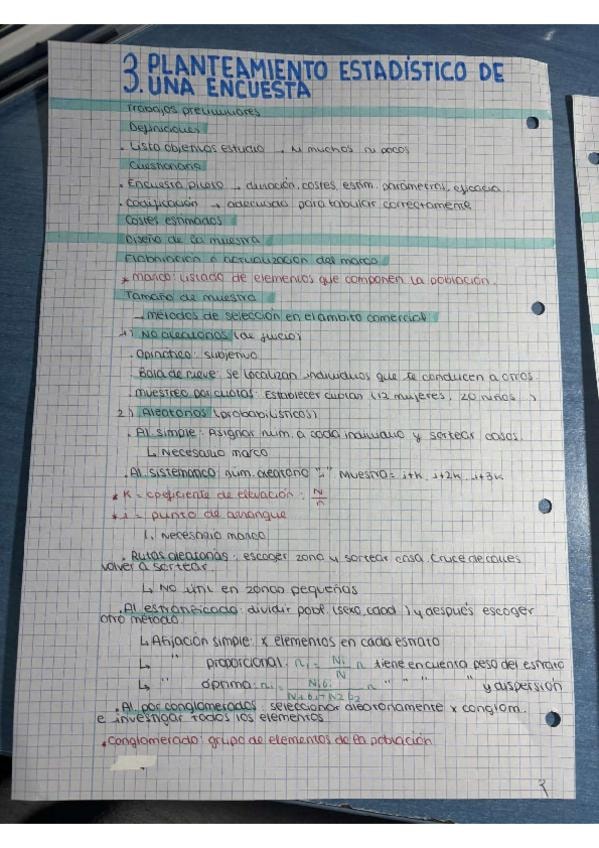 3. PLANTEAMIENTO ESTADÍSTICO DE
UNA ENCUESTA
Trabajos preliminares
Definiciones
. Lista objetivos estudio → ni muchos ni pocos
Cuestionario
. Encuesta piloto → duración, costes, estim. parámetros, eficacia
. codificación → adecuado para tabular correctamente
Costes estimados
Diseño de la muestra
Elaboración o actualización del marco
* Marco: listado de elementos que componen la población.
Tamaño de muestra
→ métodos de selección en el ámbito comercial
1) No aleatorios (de juicio)
. Opinático: subjetivo
. Bola de nieve: se localizan individuos que te conducen a otros.
. Muestreo por cuotas: Establecer cuotas (12 mujeres, 20 niños...)
2) Aleatorios (probabilísticos)
. Al simple: Asignar núm. a cada individuo y sortear casos.
↳ Necesario marco
. Al sistemático: núm. aleatorio "i" Muestra = i+k, i+2k, i+3k
* K = coeficiente de elevación: N/n
* i = punto de arranque
↳ Necesario marco
. Rutas aleatorias: escoger zona y sortear casa. Cruce de calles
volver a sortear.
↳ No útil en zonas pequeñas
. Al estratificado: dividir pobl. (sexo, edad...) y después escoger
otro método.
↳ Afijación simple: x elementos en cada estrato
↳ " proporcional: ni = Ni/N n tiene en cuenta peso del estrato
↳ " óptima: ni = n " " " " y dispersión
. Al por conglomerados: seleccionar aleatoriamente x conglom.
e investigar todos los elementos
* Conglomerado: grupo de elementos de la población